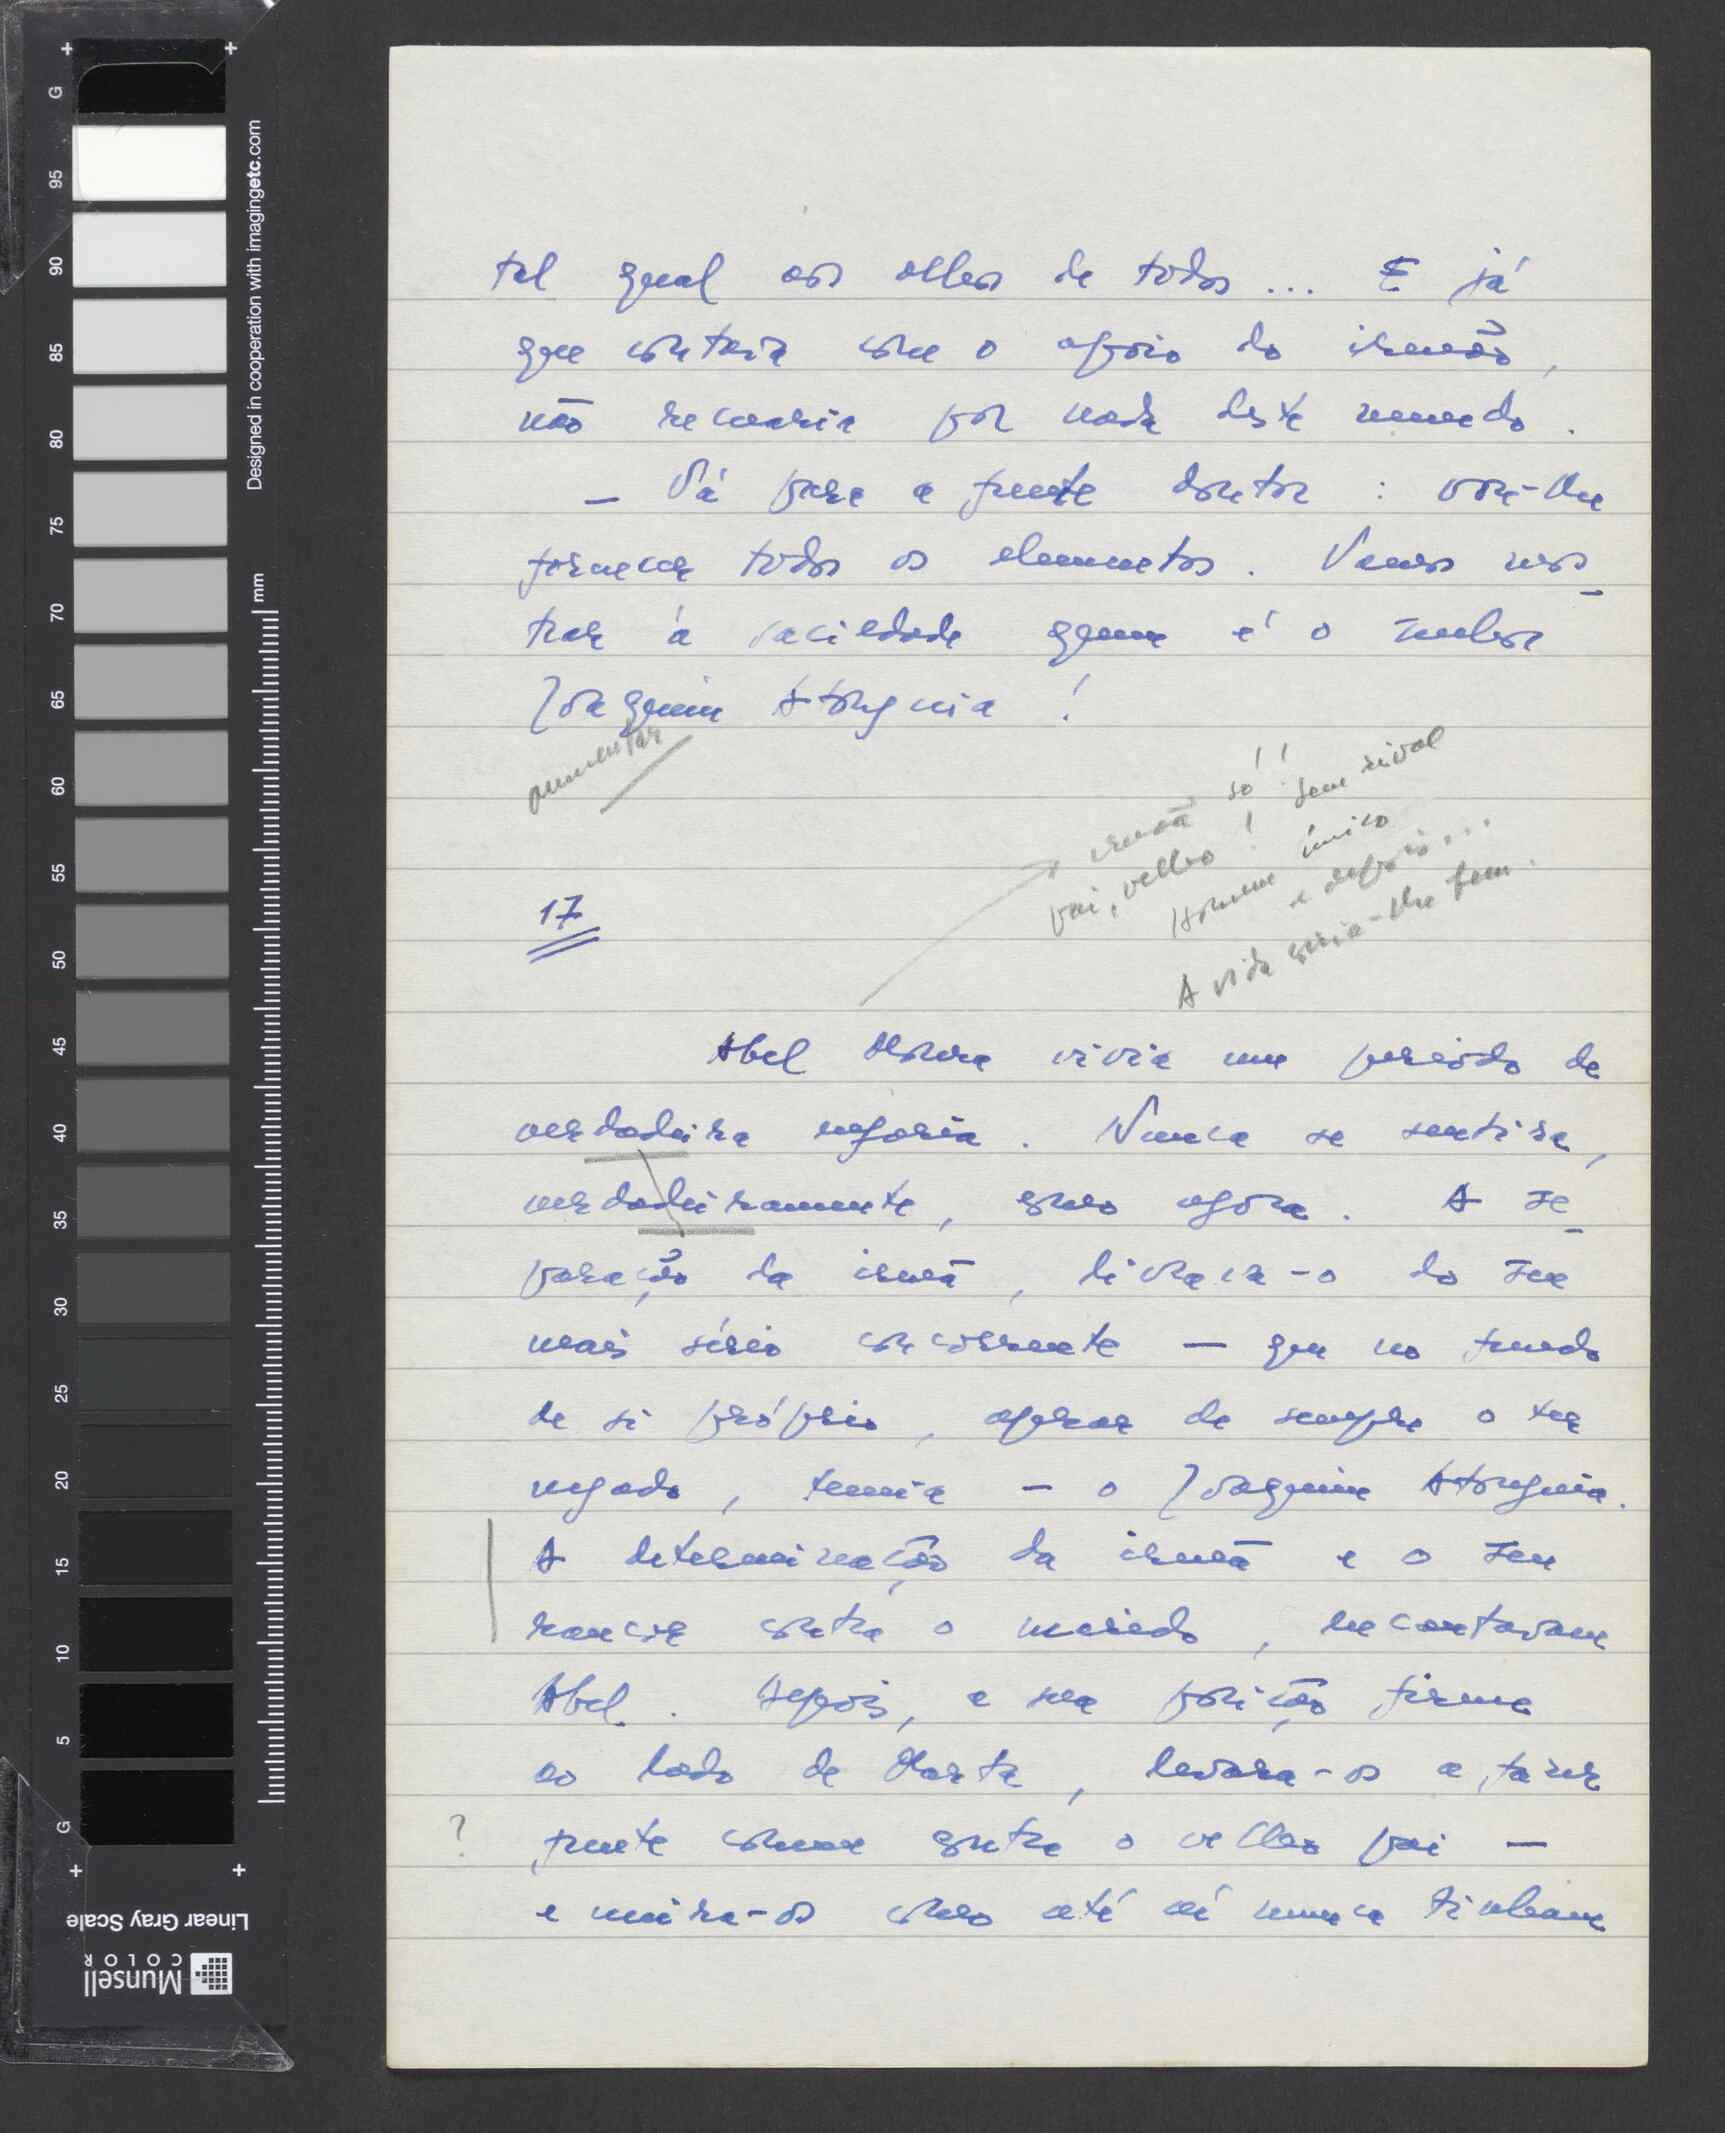 tal qual aos olhos de todos... E já
que contaria com o apoio do irmão,
não recuaria por nada deste mundo.
– Vá para a frente doutor: vou-lhe
fornecer todos os elementos. Vamos mos-
trar à saciedade quem é o senhor
Joaquim Atouguia!
aumentar
irmã só!
pai, velho! sem rival
Homem único
e depois...
A vida corria-lhe bem.
17
Abel Moura vivia um período de
verdadeira euforia. Nunca se sentira,
verdadeiramente, como agora. A se-
paração da irmã, livrara-o do seu
mais sério concorrente – que no fundo
de si próprio, apesar de sempre o ter
negado, temia – o Joaquim Atouguia.
A determinação da irmã e o seu
rancor contra o marido, encantavam
Abel. Depois, a sua posição firme
ao lado de Marta, levara-os a fazer
? frente comum contra o velho pai –
e unira-os como até aí nunca tinham
Designed in cooperation with imagingetc.com
mm
G 95 90 85 80 75 70 65 60 55 50 45 40 35 30 25 20 15 10 5 G
Linear Gray Scale
Munsell
COLOR